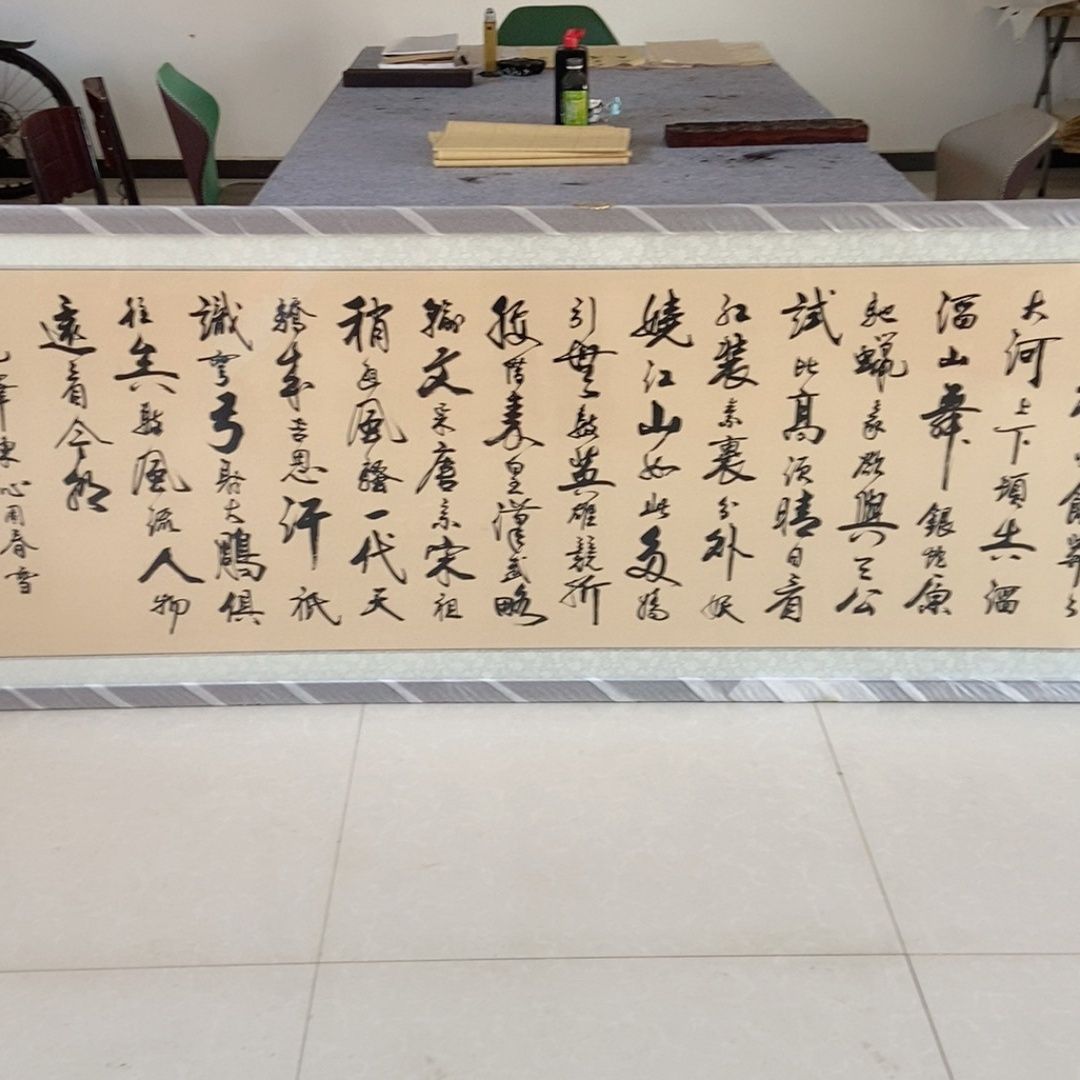 餘莽
大河上下頓失滔
滔山舞銀蛇原
馳蠟象欲與天公
試比高須晴日看
紅裝素裹分外妖
嬈江山如此多嬌
引無數英雄競折
腰惜秦皇漢武略
輸文采唐宗宋祖
稍遜風騷一代天
驕成吉思汗祇
識彎弓射大鵰俱
往矣數風流人物
還看今朝
澤東沁園春雪